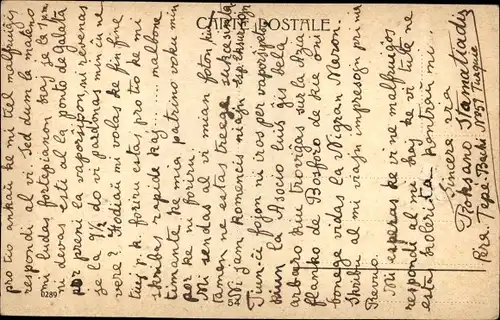 pro tio ankaŭ ke mi tiel malfruigis
respondi al vi. Sed dum la mateno
mi ludas fortepianon kaj je la
ni devas esti al la ponto de Galata
por preni la vaporŝipon, ni revenas
je la 9½ do vi pardonas min ĉu ne
vere? Hodiaŭ mi volas ke fin fine
tuj p.k foriru estas pro tio ke mi
skribas rapide kaj ... malbone
timante ke mia patrino vokus min
por ke ni foriru.
Mi sendas al vi mian foton kiu
tamen ne estas treege sukcesinta
Ni jam komencis niajn
Tiun-ĉi fojon ni iros per vaporŝipeto
kiun la Asocio luis ĝis bela
arbaro kiu troviĝas sur la Azia
flanko de Bosforo de kie oni
bonege vidas la Nigran Maron
Skribu al mi viajn impresojn pri mia
Mi esperas ke vi ne malfruigos
respondi al mi kaj ke vi tute ne
estas kolerita kontraŭ mi.
Sincere via
Roksano Stamatiadis
Pera. Tepé-Bachi N°257 Turquie
CARTE POSTALE
0289